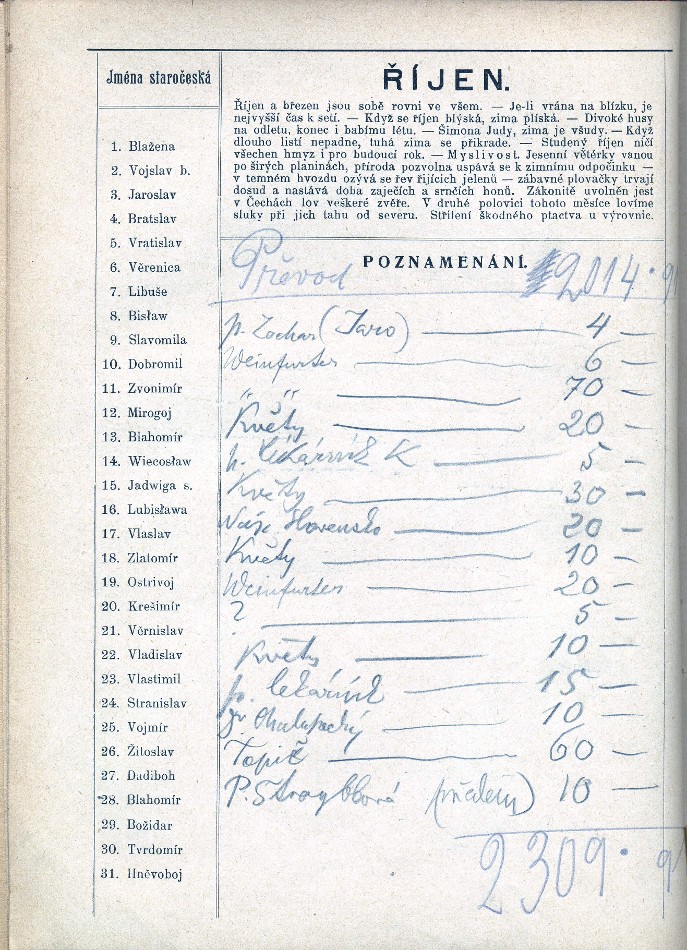 Jména staročeská
1. Blažena
2. Vojslav b.
3. Jaroslav
4. Bratslav
5. Vratislav
6. Věrenica
7. Libuše
8. Bisław
9. Slavomila
10. Dobromil
11. Zvonimír
12. Mirogoj
13. Blahomír
14. Wiecosław
15. Jadwiga s.
16. Lubisława
17. Vlaslav
18. Zlatomír
19. Ostrivoj
20. Krešimír
21. Věrnislav
22. Vladislav
23. Vlastimil
24. Stranislav
25. Vojmír
26. Žitoslav
27. Dadiboh
28. Blahomír
29. Božidar
30. Tvrdomír
31. Hněvoboj
ŘÍJEN.
Říjen a březen jsou sobě rovni ve všem. — Je-li vrána na blízku, je
nejvyšší čas k setí. — Když se říjen blýská, zima plíská. — Divoké husy
na odletu, konec i babímu létu. — Šimona Judy, zima je všudy. — Když
dlouho listí nepadne, tuhá zima se přikrade. — Studený říjen ničí
všechen hmyz i pro budoucí rok. — Myslivost. Jesenní větérky vanou
po širých planinách, příroda pozvolna uspává se k zimnímu odpočinku —
v temném hvozdu ozývá se řev říjících jelenů — zábavné plovačky trvají
dosud a nastává doba zaječích a srnčích honů. Zákonitě uvolněn jest
v Čechách lov veškeré zvěře. V druhé polovici tohoto měsíce lovíme
sluky při jich tahu od severu. Střílení škodného ptactva u výrovnic.
POZNAMENÁNÍ.
Převod 2014·9
p. Zochar (Jaro) — 4 —
Weinfurter — 6 —
" " — 70 —
Květy — 20 —
p. lékárník K — 5 —
Květy — 30 —
Naše Slovensko — 20 —
Květy — 10 —
Weinfurter — 20 —
? — 5 —
Květy — 10 —
p. lékárník — 15 —
Chalupecký — 10 —
Topič — 60 —
P. 10 —
2309·9